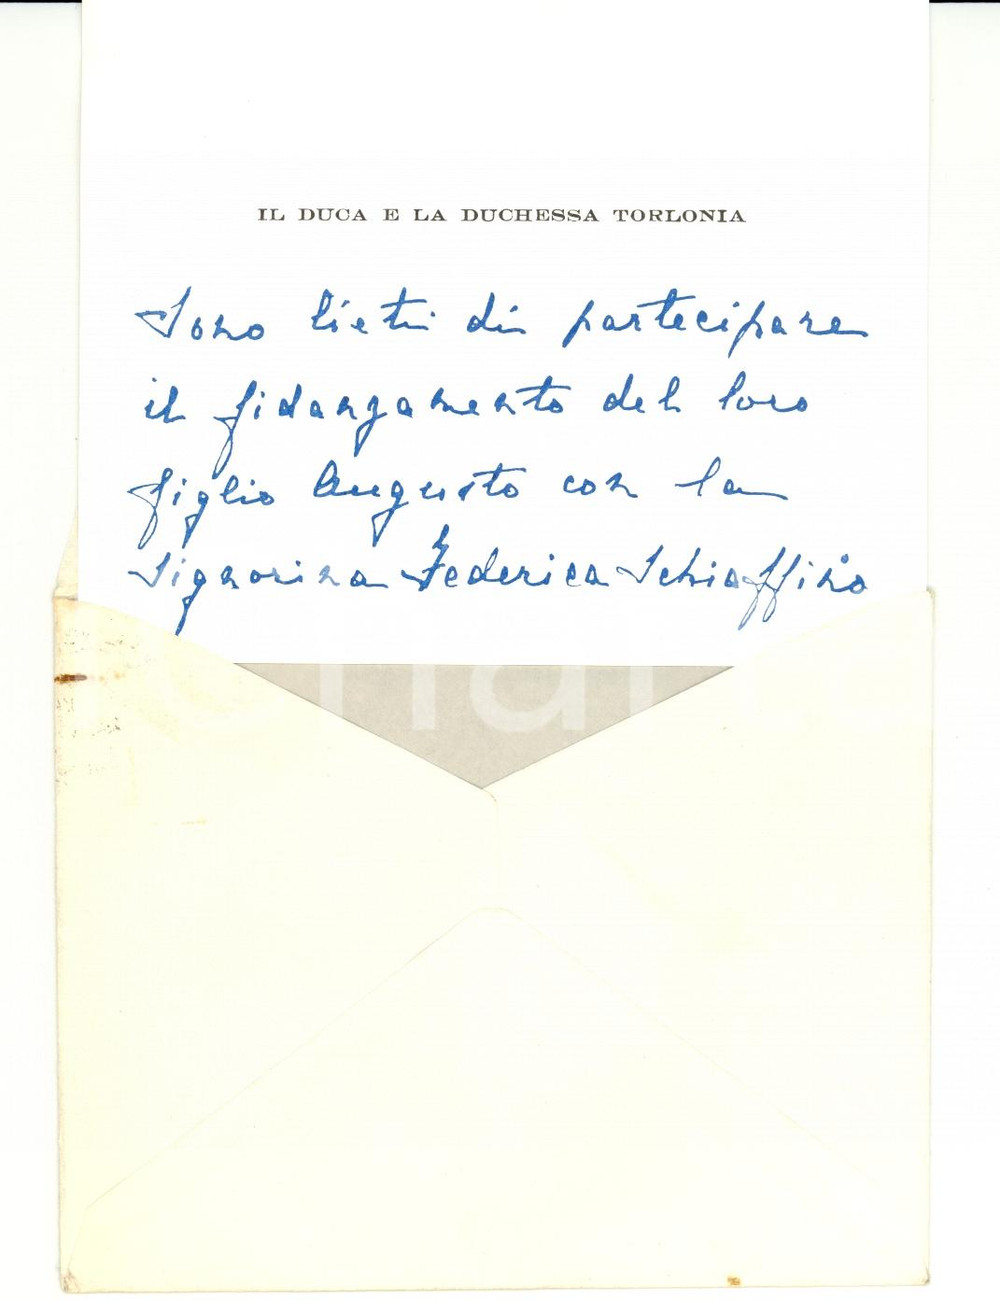 IL DUCA E LA DUCHESSA TORLONIA
Sono lieti di partecipare
il fidanzamento del loro
figlio Augusto con la
Signorina Federica Schiaffino